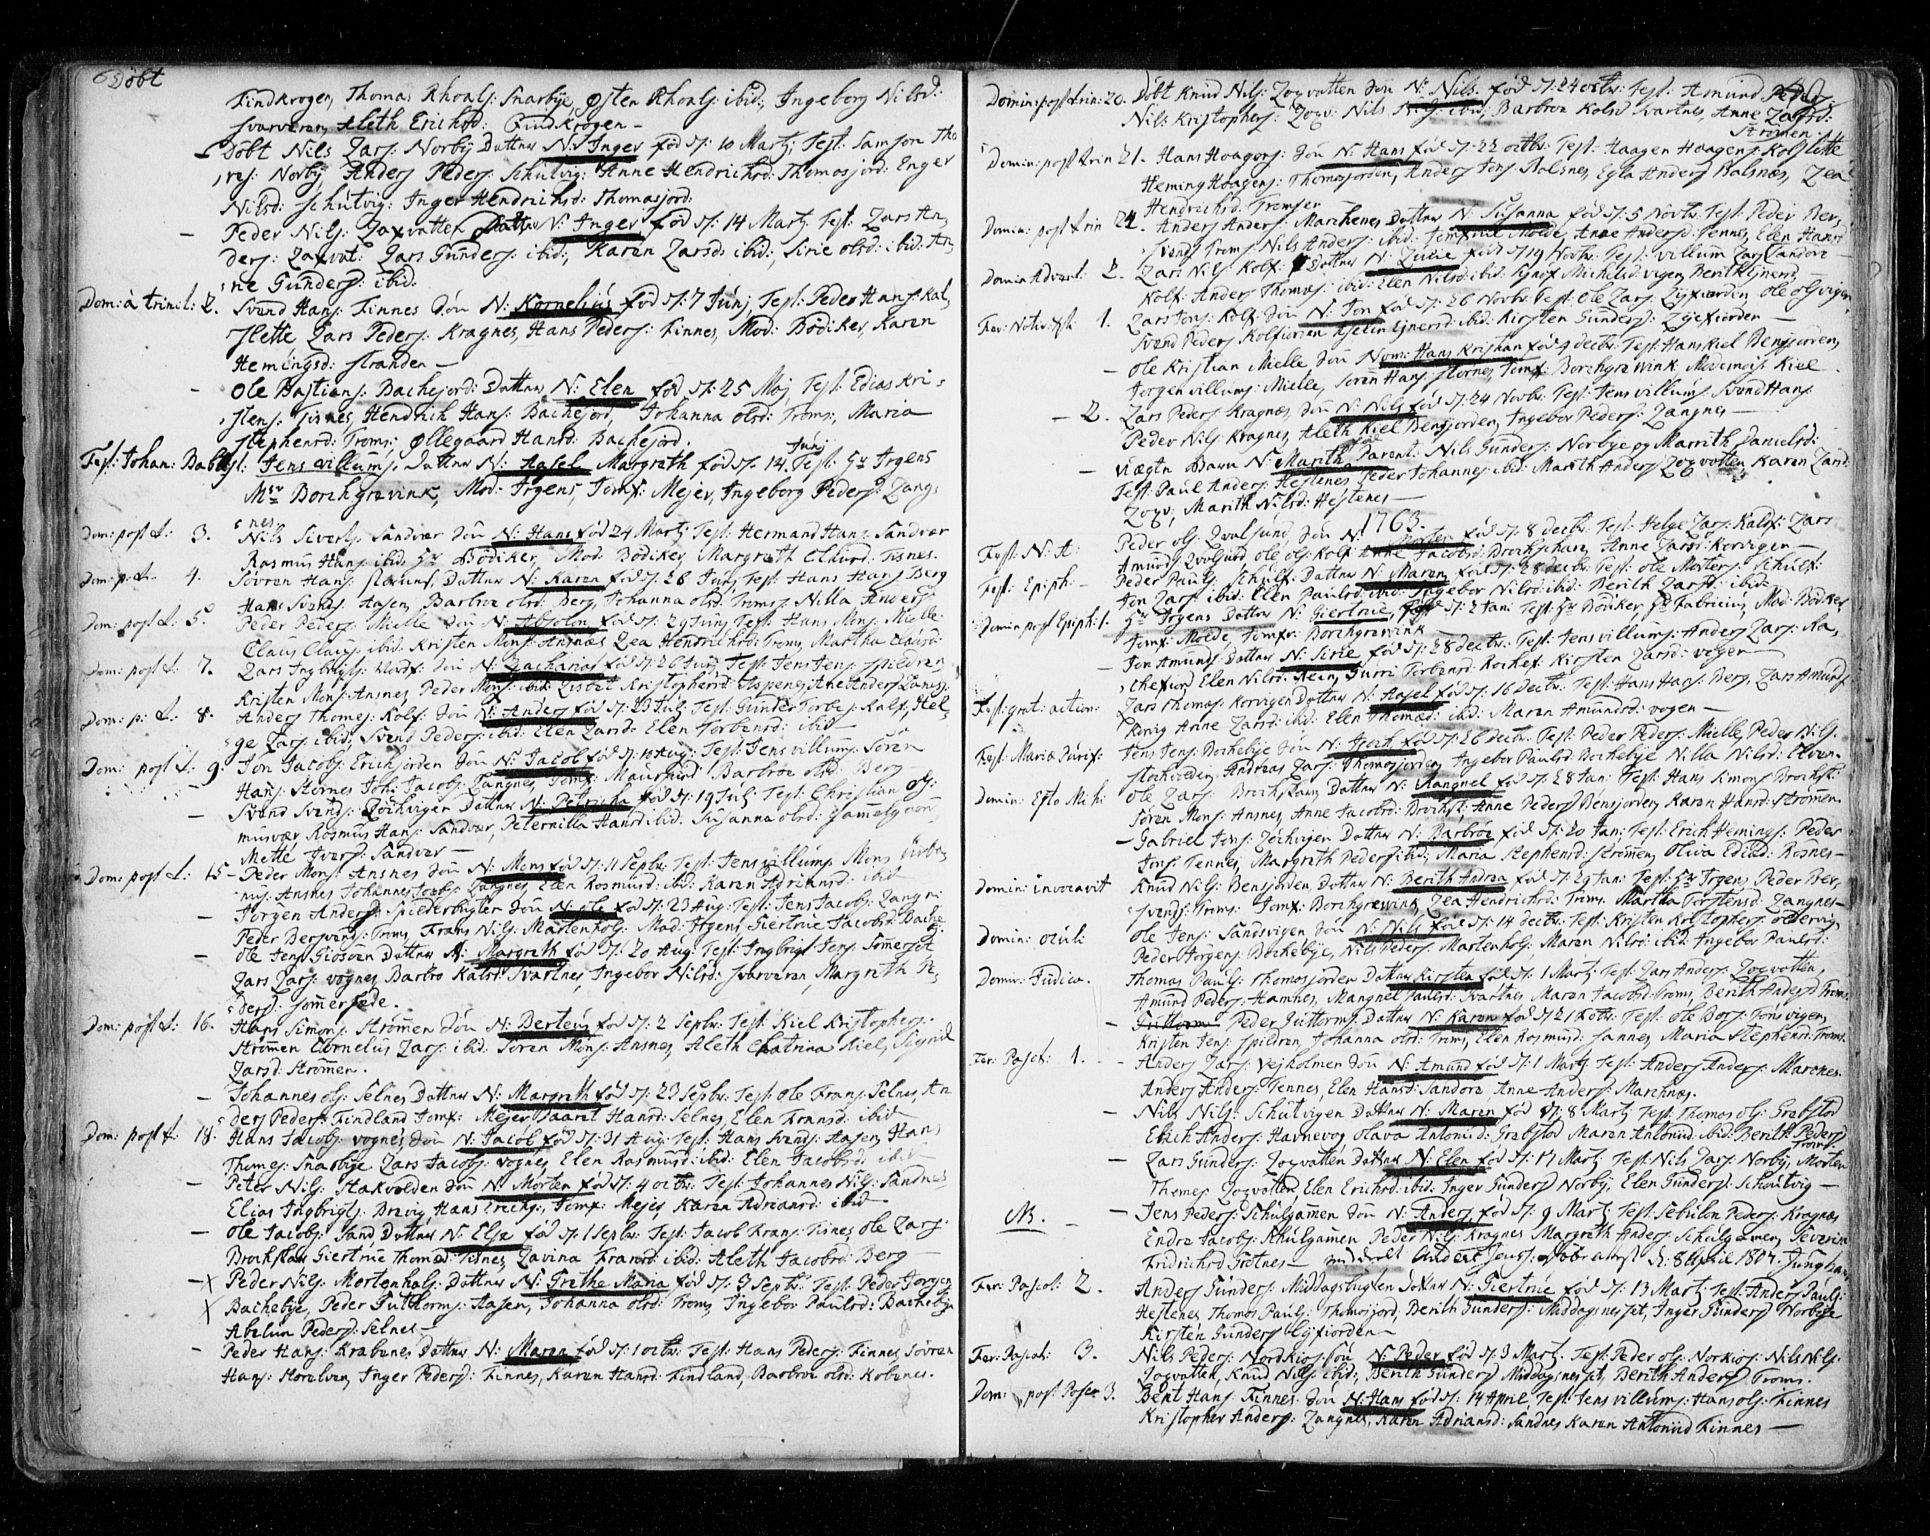 Döbt
Findkrogen, Thomas Rhoalſ: Snarbÿe, Øſten Rhoalſ: ibid:, Ingeborg Nilsd:
Svarværen, Aleth Erichsd: Findkrogen –
– Döbt Nils Larſ: Norbÿ Datter N: Inger fød d: 10 Martj Teſt: Samſon Tho
reſ: Norbÿ, Anderſ Pederſ: Schútvig: Anne Hendrichsd: Thomasjord: Enger
Nilsd: Schútvig: Inger Hendrichsd: Thomasjord.
– Peder Nilſ: Laxvatten Datter N: Inger fød d: 14 Martj Teſt: Lars An,
derſ: Laxvat: Lars Gúnderſ: ibid:, Karen Larsd: ibid:, Sirie olsd: ibid: An,
ne Gúnderſ: ibid.
Dom: à trinit: 2. Svend Hanſ: Finnes Søn N: Kornelius fød d: 7 Júnj, Teſt: Peder Hanſ: Kal,
Slette Lars Pederſ: Kragnes, Hans Pederſ: Finnes, Mad: Bödiker, Karen
Hemingsd: Stranden –
– Ole Baſtianſ: Bachejord: Datter N: Elen fød d: 25 Maj, Teſt: Edias Kri,
ſtenſ: Tisnes, Hendrich Hanſ: Bachejord, Johanna olsd: Troms:, Maria
Stephensd: Troms:, Øllegaard Hansd: Bachejord.
Feſt: Johan: Babtiſt: Jens Villumſ: Datter N: Aaſel Margreth fød d: 14 Júnj Teſt: Hr Irgens
Msr Borchgrevink, Mad: Irgens, Jomf: Mejer, Ingeborg Pederſ: Lang,
nes
Dom: poſt t: 3. Nils Siverſ: Sandvær Søn N: Hans fød 24 Martj Teſt: Herman Hanſ: Sandvær
Rasmus Hanſ: ibid: Hr Bödiker, Mad: Bödiker, Margreth Tisnes.
Dom: p: t: 4. Sövren Hanſ: Datter N: Karen fød d: 26 Junj Teſt: Hans Hanſ: Berg
Hans Svendſ: Aaſen, Barbroe olsd: Berg, Johanna olsd: Troms: Nilla Anderſ:
Dom: poſt t: 5. Peder Pederſ: Mielle Søn N: Abſolon fød d: 29 Junj Teſt: Hans Monſ: Mielle
Claus Clausſ: ibid: Kriſten Monſ: Andnæs Lea Hendrichsd: Troms, Martha Clausd:
Dom: poſt t: 7. Lars Ingbrigtſ: Søn N: Zacharias fød d: 26 Junj Teſt: Jens Jenſ: Spildren
Kriſten Monſ: Ansnes, Peder Monſ: ibid: Lisbet Kriſtophersd: Aspenes, Ane Anderſ Lanes
Dom: p: t: 8. Anders Thomeſ: Kolf: Søn N: Anders fød d: 23 Julj Teſt: Gunder Torbeſ: Kalf: Hel,
ge Larſ: ibid: Svend Pederſ: ibid: Elen Larsd: Elen Torbensd: ibid
Dom: poſt t: 9. Jon Jacobſ: Erichjorden Søn N: Jacob fød d: 10 Aug: Teſt: Jens Villumſ: Sören
Hanſ: Stornes Joh: Jacobſ: Langnes, Jomf: Maursund Barbroe olsd: Berg –
– Svend Svendſ: Lochvigen Datter N: Petricka fød d: 19 Julj Teſt: Chriſtian olſ:
musvær Rasmus Hanſ: Sandvær, Peternilla Hansd: ibid: Suſanna olsd: Gammelgaar,
Mette Iverſ: Sandvær –
Dom: poſt t: 15 – Peder Monſ: Ansnes Søn N: Mons fød d: 11 Septbr Teſt: Jens Villumſ: Mons
Ansnes Johannes Jacobſ: Langnes, Elen Rasmusd: ibid: Karen Adriansd: ibid
– Jörgen Anderſ: Spilderbugten Søn N: Ole fød d: 23 Aug: Teſt: Jens Jacobſ: Langn:
Peder Berſvendſ: Troms, Frans Nilſ: Martenholſ: Mad: Irgens, Giertrúe Jacobsd: Bache,
– ole Jenſ: Giösöen Datter N: Margreth fød d: 20 Aug: Teſt: Ingbrigt Jenſ: Sömerſet
Lars Larſ: vognes Barbro Katsd: Svartnes, Ingebor Nilsd: Svarværen, Margreth Pe,
derſ: Sömersæde.
Dom: poſt t: 16. Hans Simonſ: Strömen Søn N: Berteus fød d: 2 Septbr: Teſt: Kiel Kriſtopherſ:
Strömen Cornelius Larſ: ibid: Sören Monſ: Ansnes, Aleth Chatrina Kiel, Signil
Larsd: Strömen.
– Johannes olſ: Selnes, Datter N: Margreth fød d: 23 Septbr: Teſt: ole Franſ: Selnes, An
ders Pederſ: Findland Jomf: Mejer, Baaret Hansd: Selnes, Elen Fransd: ibid –
Dom: poſt t: 18. Hans Jacobſ: vognes, Søn N: Jacob fød d: 31 Aug: Teſt: Hans Svendſ: Aaſen, Hans
Thomeſ: Snarbÿe Lars Jacobſ: vognes, Elen Rasmusd: ibid: Elen Jacobsd: ibid –
– Peter Nilſ: Stakvolden Søn N: Morten fød d: 4 octbr: Teſt: Johannes Nilſ: Sandnes
Elias Ingbrigtſ: Brevig, Hans Erichſ:, Jomf: Mejer, Karen Adriansd: ibid –
– ole Jacobſ: Sand, Datter N: Elſe fød d: 1 Septbr: Teſt: Jacob Franſ: Tisnes ole Larſ:
Brochſkar Giertrúe Thomæd: Tisnes, Lavina Fransd: ibid: Aleth Jacobsd: Berg –
–x Peder Nilſ: Mortenhals: Datter N: Grethe Maria fød d: 9 Septbr: Teſt: Peder Jorgen
x Bachebÿe, Peder Gutthormſ: Aaſen, Johanna olsd: Troms, Ingebor Paulsd: Bachebÿe
Abelun Pederſ: Selnes –
– Peder Hanſ: Krabenes Datter N: Maren fød d: 1 octbr: Teſt: Hans Pederſ: Finnes, Sövren
Hanſ: Storelven, Inger Pederſ: Finnes, Karen Hansd: Findland, Barbroe olsd: Kobenes.
Domin: poſt trin: 20. Döbt Knud Nilſ: Laxvatten Søn N: Nils fød d: 24 octbr: Teſt: Amund Peder
Nils Kriſtopherſ: Laxv: Nils Nilſ: ibid:, Barbroe Kolsd Svartnes, Anne Larsd:
Strömen
Domin: poſt trin 21. Hans Haagenſ: Søn N: Hans fød d: 22 octbr: Teſt: Haagen Haagenſ: Kalſlette
Heming Haagenſ: Thomasjorden, Anders Jenſ: Balsnes, Egla Anderſ Balsnæs, Lea
Hendrichsd: Tromſen
Domin: poſt trin 24. Anders Anderſ: Marchenes, Datter N: Suſanna fød d: 5 Novbr: Teſt: Peder Ber,
ſvendſ: Troms, Nils Anderſ: ibid: Jomfrue Molde, Anne Anderſd: Tennes, Elen Hansd
Domin Advent: 2. Lars Nilſ: Kolf: Datter N: Lucie fød d: 19 Novbr: Teſt: Villum Larſ Sandöre –
Kolf: Anders Thomæſ: ibid: Elen Nilsd: ibid: Signof Michelsd: vigen, Berit
Fer: Nativ: X 1. Lars Jonſ: Kolf: Søn N: Jon fød d: 26 Novbr: Teſt: Ole Larſ: Lÿefiorden, Ole olſ: vigen
Svend Pederſ: Kolfiorden, Ejnersd: ibid: Kirſten Gundersd: Lÿefiorden –
– Ole Kriſtian Mielle, Søn Nom: Hans Kriſtian fød 9 decbr: Teſt: Hans Kiel Bensjorden,
Jorgen Villumſ: Mielle, Sören Hanſ: Stornes, Jomf: Borchgrevink, Mademoiſ: Kiel.
– 2. Lars Pederſ: Kragnæs, Søn N: Nils fød d: 24 Novbr: Teſt: Jens Villumſ: Svend Hanſ:
Peder Nilſ: Kragnes, Aleth Kiel Bensjorden, Ingebor Pederſ: Langnes –
– Uægte Barn N: Marith Parent: Nils Gunderſ: Norbÿe og Marith Danielsd:
Teſt: Paul Anderſ: Heſtenes, Peder Johannes: ibid: Marith Anderſ Laxvatten, Karen Larsd:
Laxv: Marith Nilsd: Heſtenes –
1763.
Feſt: N: A: Peder olſ: Qvalsund, Søn N: Morten fød d: 8 decbr: Teſt: Helge Larſ: Kaldf: Lars
Amundſ: Qvalſund, ole olſ: Kolf: Anne Jacobsd: Brochſkar, Anne Larsd: Korvigen –
Feſt: Epiph: – Peder Paulſ: Schulſ: Datter N: Maren fød d: 28 decbr: Teſt: Ole Morteſ: Schulſ:
Jon Larſ: ibid: Elen Paulsd: ibid: Ingebor Nilsd: ibid: Berith Larsd: ibid:
Domin: poſt Epiph: 1. Hr Irgens Datter N: Giertrúe, fød d: 2 Jan: Teſt: Hr Bödiker Hr Fabricius, Mad: Bödiker
Jomf: Molde, Jomfr: Borchgrevink
– Jon Amundſ: Datter N: Sirie fød d: 28 decbr: Teſt: Jens Villumſ: Anders Larſ: Ra,
chefiord Elen Nilsd: Rein, Gurri Torbensd: Rochef: Kirſten Larsd: vogen –
Feſt: grat: action: Lars Thomæſ: Korvigen Datter N: Aaſel fød d: 16 Decbr: Teſt: Hans Hanſ: Berg, Lars Amundſ:
Anne Larsd: ibid: Elen Thomæd: ibid: Maren Amundsd: vogen –
Feſt: Mariæ Purif: Jens Jenſ: Bochebÿe Søn N: fød d: 26 Decbr: Teſt: Peder Pederſ: Mielle, Peder Nilſ:
Andreas Larſ: Thomasjorden, Ingebor Paulsd: Bochebÿe Nilla Nilsd: Elven –
Domin: Eſto Mih: Ole Larſ: Brochſkar, Datter N: Mangnel fød d: 28 Jan: Teſt: Hans Simonſ: Brochſk:
Sören Monſ: Ansnes, Anne Jacobsd: Brochſk:, Anne Pederſ: Bensjorden, Karen Hansd: Strömen.
– Gabriel Jonſ: Lochvigen Datter N: Barbroe fød d: 20 Jan: Teſt: Erich Hemingſ: Peder
Jonſ: Tennes, Margrith Pederſ: ibid:, Maria Stephensd: Strömen, Oliva Edisd: Rosnes –
Domin: invocavit Knud Nilſ: Bensjorden, Datter N: Berith Andrea fød d: 29 Jan: Teſt: Hr Irgens, Peder Ber,
ſvendſ: Troms: Jomf: Borchgrevink, Lea Hendrichsd: Troms: Martha Torſtensd: Langnes –
Domin: oculi Ole Jenſ: Sandvigen Søn N: Nils fød d: 14 decbr: Teſt: Kriſten Kriſtopherſ: Ottervig,
Peder Jörgenſ: Bochebÿe, Nils Pederſ: Martenholſ, Maren Nilsd: ibid: Ingebor Paulsd:
Domin: Judica. Thomas Paulſ: Thomasjorden Datter Kirſten fød d: 1 Martj Teſt: Lars Anderſ: Laxvatten,
Amund Pederſ: Hamnes, Mangnel Paulsd: Svartnes Maren Jacobsd: Troms, Berith Anderſd Troms:
– Guttorm Peder Guttormſ: Datter N: Karen fød d: 21 octbr: Teſt: ole Borſ: Tonsvigen,
Kriſten Jenſ: Spildren, Johanna olsd: Troms, Elen Rasmusd: Sannes, Maria Stephensd: Troms.
Fer: Paſch: 1. – Anders Larſ: Vejholmen Søn N: Amund fød d: 1 Martj Teſt: Anders Anderſ: Marches
Anders Anderſ: Tennes, Elen Hansd: Sandöre Anne Anderſ: Marchnæs.
– Nils Nilſ: Schútvigen Datter N: Maren fød d: 8 Martj Teſt: Thomas olſ: Grebſtod
Erich Anderſ: Havnevog Olava Antonisd: Grebſtod Maren Antonisd: ibid: Berith Pederſ
Troms
– Lars Gunderſ: Laxvatten Datter N: Elen fød d: 17 Martj Teſt: Nils Larſ: Norbÿ, Morten
Thomeſ Laxvatten, Elen Erichsd: ibid: Inger Gunderſd Norbÿ, Elen Gunderſ: Schútvig –
NB. – – Jens Pederſ: Schulgamen Søn N: Anders fød d: 9 Martj Teſt: Sebulon Pederſ: Kragnæs
Endre Jacobſ: Schulgamen Peder Nilſ: Kragnes Margreth Anderſ: Schulgamen, Severin
Fridrichsd Grötnes – d: 8 April 1807. Junghan
Fer: Paſcat: 2. Anders Gunderſ: Middagsbugten Datter N: Giertrúe fød d: 13 Martj Teſt: Anders Paulſ:
Heſtenes, Thomas Paulſ: Thomasjord, Berith Gunderſ: Middagsneſet, Inger Gunderſ Norbÿe
Kirſten Gunderſ Lÿfiorden –
Fer: Paſcat: 3. Nils Pederſ: Nordkios Søn N: Peder fød d: 3 Martj Teſt: Peder olſ: Norkios: Nils Nilſ:
Laxvatten, Knud Nilſ: ibid:, Berith Gunderſ Middagsneſet, Berith Anderſ Troms.
Dom: poſt Paſca 3. Bent Hanſ Finnes Søn N: Hans fød d: 14 April, Teſt: Jens Villumſ: Hans olſ: Finnes
Kriſtopher Anderſ: Langnes, Karen Adriansd: Sandnes Karen Antonisd Finnes –